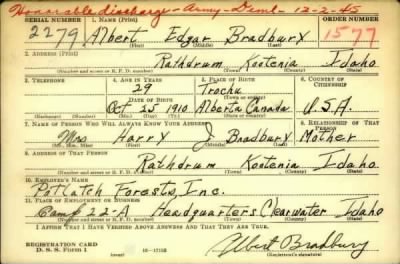 Honorable discharge - Army - Deml - 12-2-45
SERIAL NUMBER 1. NAME (Print) ORDER NUMBER
2279 Albert Edgar Bradbury 1577
(First) (Middle) (Last)
2. ADDRESS (Print)
Rathdrum Kootenia Idaho
(Number and street or R. F. D. number) (Town) (County) (State)
3. TELEPHONE 4. AGE IN YEARS 5. PLACE OF BIRTH 6. COUNTRY OF CITIZENSHIP
29 Trochu
DATE OF BIRTH (Town or county)
Oct 25 1910 Alberta Canada U.S.A.
(Exchange) (Number) (Mo.) (Day) (Yr.) (State or country)
7. NAME OF PERSON WHO WILL ALWAYS KNOW YOUR ADDRESS 8. RELATIONSHIP OF THAT PERSON
Mrs Harry J Bradbury Mother
(Mr., Mrs., Miss) (First) (Middle) (Last)
9. ADDRESS OF THAT PERSON
Rathdrum Kootenia Idaho
(Number and street or R. F. D. number) (Town) (County) (State)
10. EMPLOYER'S NAME
Potlatch Forests, Inc.
11. PLACE OF EMPLOYMENT OR BUSINESS
Camp 22-A Headquarters Clearwater Idaho
(Number and street or R. F. D. number) (Town) (County) (State)
I AFFIRM THAT I HAVE VERIFIED ABOVE ANSWERS AND THAT THEY ARE TRUE.
REGISTRATION CARD
D. S. S. Form 1 (over) 16-17105 Albert Bradbury
(Registrant's signature)